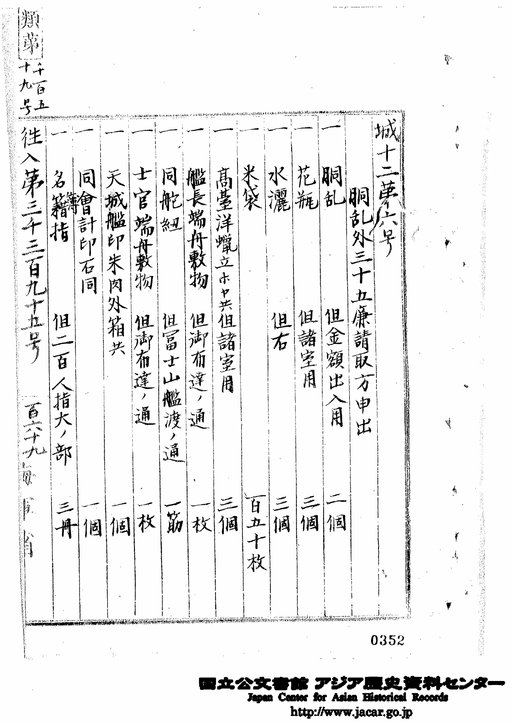 類第
千百五
十九号
城十二第六号
胴乱外三十五廉請取方申出
一 胴乱 但金額出入用 二個
一 花瓶 但諸室用 三個
一 水灑 但右 三個
一 米袋 百五十枚
一 高臺洋蠟立ホヤ共但諸室用 三個
一 艦長端舟敷物 但御布達ノ通 一枚
一 同舵紐 但冨士山艦渡ノ通 一筋
一 士官端舟敷物 但御布達ノ通 一枚
一 天城艦印朱肉外箱共 一個
一 同會計印石同 一個
一 名簿籍指 但二百人指大ノ部 三冊
往入第三千三百九十五号 百六十九
0352
国立公文書館 アジア歴史資料センター
Japan Center for Asian Historical Records
http://www.jacar.go.jp